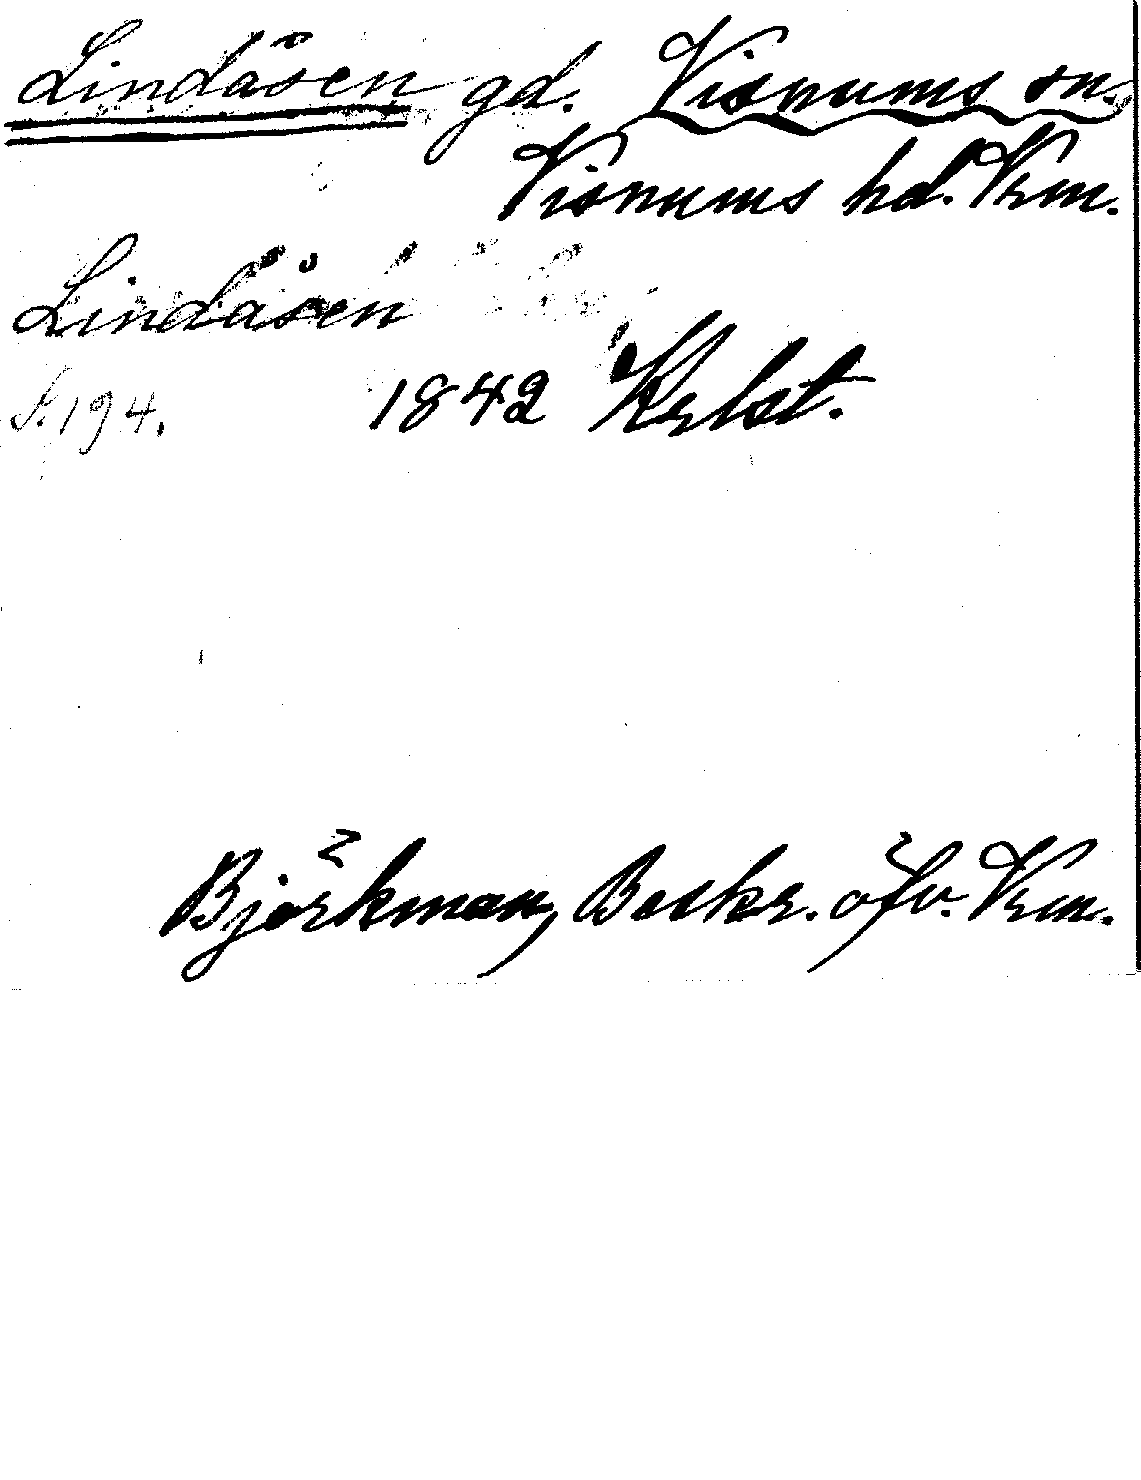 Lindåsen gd. Visnums sn.
Visnums hd. Vrm.
Lindåsen
S. 194. 1842 Krlst.
Björkman, Beskr. öfv. Vrm.